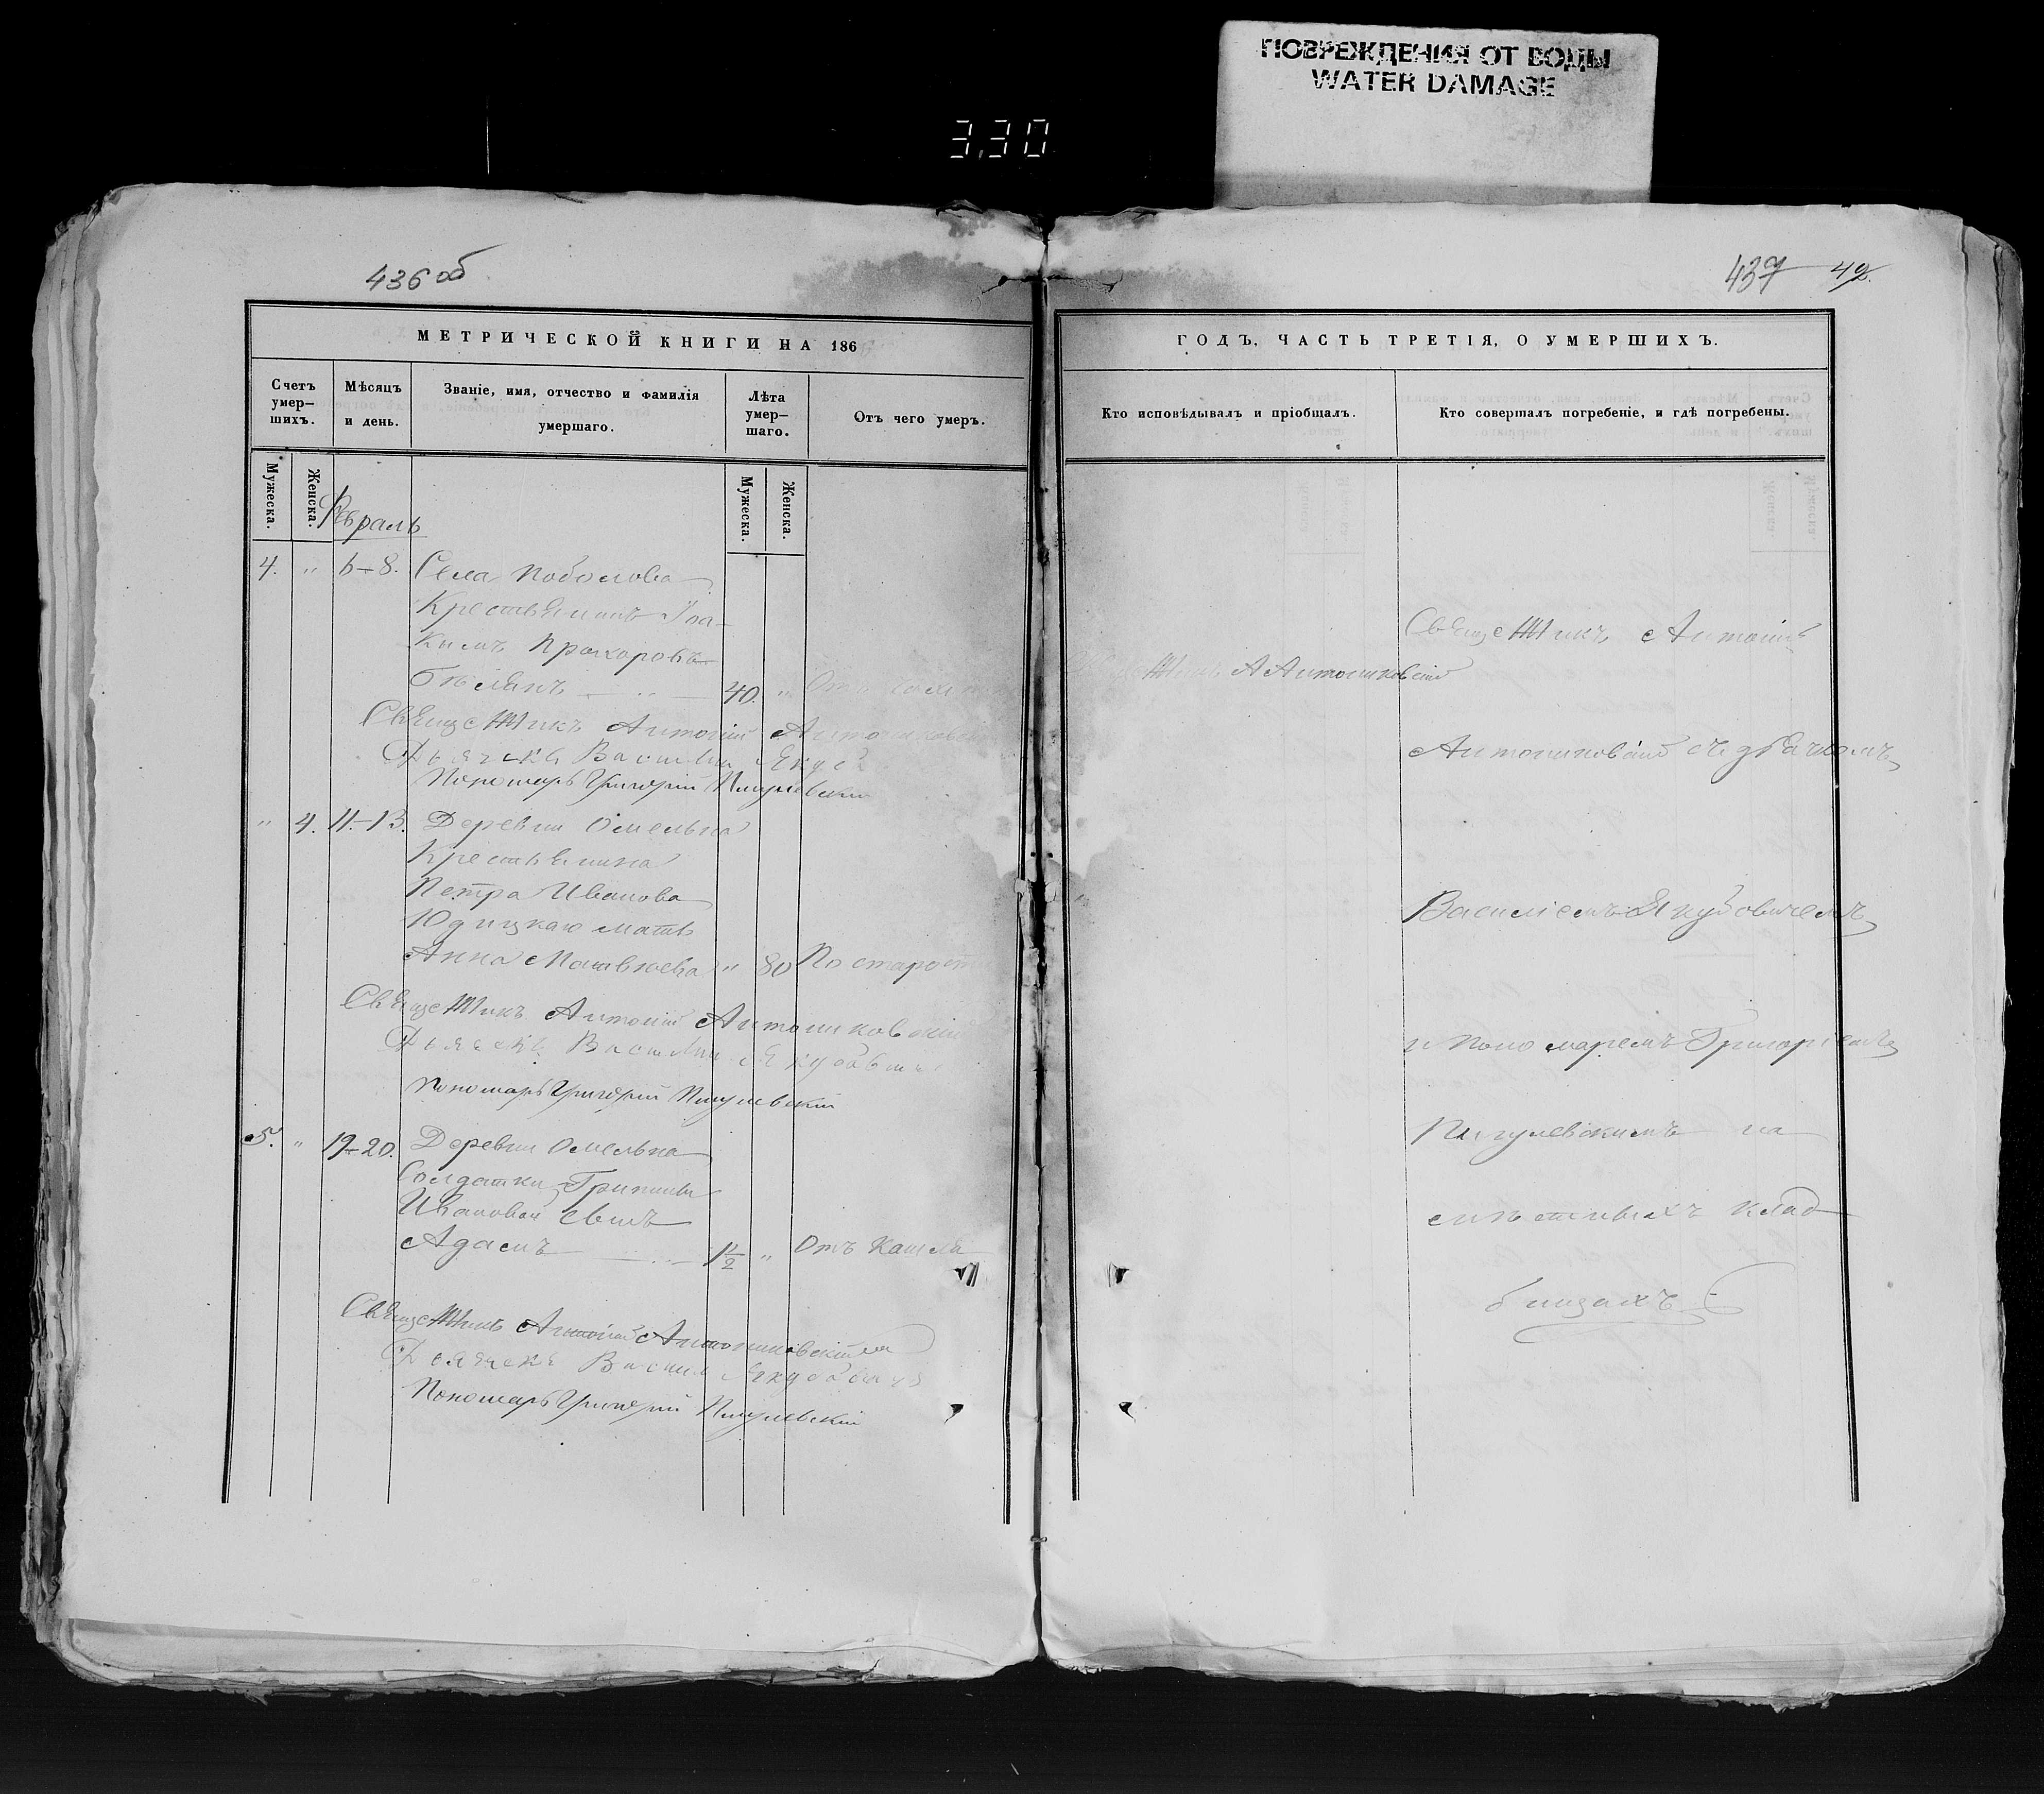 ПОВРЕЖДЕНИЯ ОТ ВОДЫ
WATER DAMAGE
3,30
436 об
МЕТРИЧЕСКОЙ КНИГИ НА 186
Счетъ умер-шихъ.
Мѣсяцъ и день.
Званіе, имя, отчество и фамилія умершаго.
Лѣта умер-шаго.
Отъ чего умеръ.
Мужеска.
Женска.
Мужеска.
Женска.
Февраль
4. " 6-8. Села Поболова
Крестьянинъ Іоа-
кимъ Прохоровъ
Бѣлякъ — " — 40. " Отъ
Священникъ Антоній Антониковскій
Дьячекъ Василій
Пономарь Григорій Пигулевскій
" 4. 11-13. Деревни Омельна
Крестьянина
Петра Иванова
Юдицкаго мать
Анна " 80 По старости
Священникъ Антоній Антониковскій
Дьячекъ Василій Якубовичъ
Пономарь Григорій Пигулевскій
5. " 19-20. Деревни Омельна
Солдатки
Ивановой сынъ
Адамъ — " — 1½ " Отъ кашля
Священникъ Антоній Антониковскій
Дьячекъ Василій Якубовичъ
Пономарь Григорій Пигулевскій
437 42
ГОДЪ, ЧАСТЬ ТРЕТІЯ, О УМЕРШИХЪ.
Кто исповѣдывалъ и пріобщалъ.
Кто совершалъ погребеніе, и гдѣ погребены.
Священникъ Антоній
А Антониковскій
Антониковскій съ дьячкомъ
Василіемъ Якубовичемъ
и пономаремъ Григоріемъ
Пигулевскимъ на
мѣстныхъ клад-
бищахъ